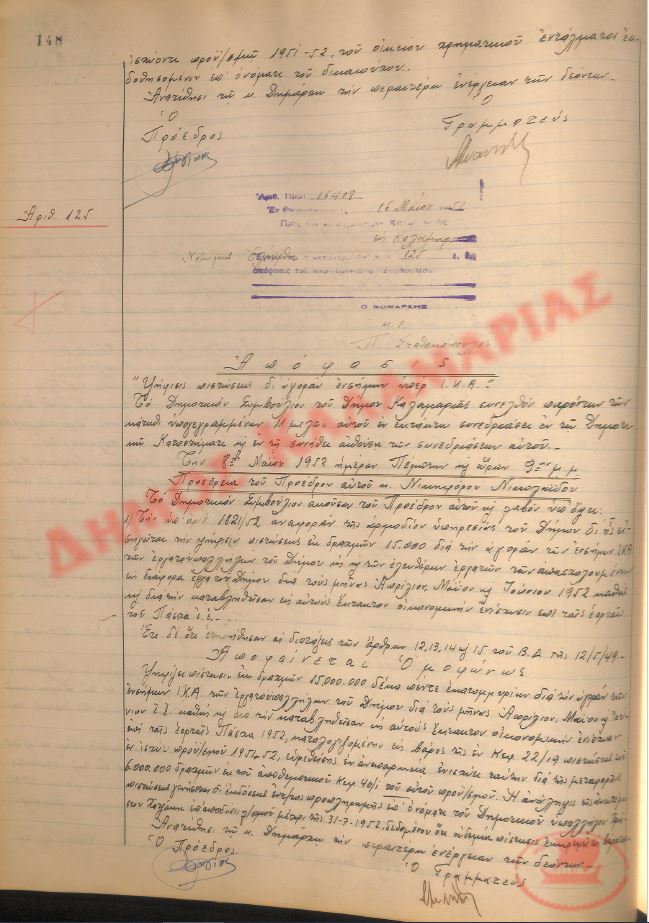 148
ἰσχύοντι προϋ/σμῷ 1951-52, τοῦ οἰκείου χρηματικοῦ ἐντάλματος ἐκ-
δοθησομένου ἐπ' ὀνόματι τοῦ δικαιούχου.
Ἀνατίθησι τῷ κ. Δημάρχῳ τὴν περαιτέρω ἐνέργειαν τῶν δεόντων.-
Ὁ Πρόεδρος
Ὁ Γραμματεύς
Ἀριθ. 125
Ἀριθ. Πρωτ. 16408
16 Μαΐου 1952
εἰς Καλαμαριὰ
Νομίμως 125
Ο ΝΟΜΑΡΧΗΣ
Ἀπόφασις
"Ψήφισις πιστώσεως δι' ἀγορὰν ἐνσήμων ὑπὲρ Ι.Κ.Α."
Τὸ Δημοτικὸν Συμβούλιον τοῦ Δήμου Καλαμαριᾶς συνελθὸν παρόντων τῶν
κάτωθι ὑπογεγραμμένων Μελῶν αὐτοῦ ἐν ἐκτάκτῳ συνεδριάσει ἐν τῷ Δημοτι-
κῷ Καταστήματι κ ἐν τῇ συνήθει αἰθούσῃ τῶν συνεδριάσεων αὐτοῦ.-
Τὴν 8ην Μαΐου 1952 ἡμέραν Πέμπτην κ ὥραν 9ην μ.μ.
Προεδρείᾳ τοῦ Προέδρου αὐτοῦ κ. Νικηφόρου Νικολαΐδου
Τὸ Δημοτικὸν Συμβούλιον ἀκοῦσαν τοῦ Προέδρου αὐτοῦ κ λαβὸν ὑπ' ὄψει:
1) Τὴν ὑπ' ἀριθ. 1821/52 ἀναφορὰν τῆς ἁρμοδίου ὑπηρεσίας τοῦ Δήμου δι' ἧς εἰ-
σηγεῖται τὴν ψήφισιν πιστώσεως ἐκ δραχμῶν 15.000 διὰ τὴν ἀγορὰν τῶν ἐνσήμων Ι.Κ.Α.
τῶν ἐργατοϋπαλλήλων τοῦ Δήμου κ τῶν ἐλευθέρων ἐργατῶν τῶν ἀπασχολουμένων
εἰς διάφορα ἔργα τοῦ Δήμου διὰ τοὺς μῆνας Ἀπρίλιον, Μάϊον κ Ἰούνιον 1952 καθὼς
κ διὰ τὴν καταβληθεῖσαν εἰς αὐτοὺς ἔκτακτον οἰκονομικὴν ἐνίσχυσιν ἐπὶ ταῖς ἑορταῖς
τοῦ Πάσχα ἐ.ἔ.-
Ἔτι δὲ ὅτι ἐτηρήθησαν αἱ διατάξεις τῶν ἄρθρων 12,13,14 κ 15 τοῦ Β.Δ. τῆς 12/5/49.-
Ἀποφαίνεται Ὁμοφώνως
Ψηφίζει πίστωσιν ἐκ δραχμῶν 15.000.000 δέκα πέντε ἑκατομμυρίων διὰ τὴν ἀγορὰν τῶν
ἐνσήμων Ι.Κ.Α. τῶν ἐργατοϋπαλλήλων τοῦ Δήμου διὰ τοὺς μῆνας Ἀπρίλιον, Μάϊον κ Ἰού-
νιον ἐ.ἔ. καθὼς κ διὰ τὴν καταβληθεῖσαν εἰς αὐτοὺς ἔκτακτον οἰκονομικὴν ἐνίσχυσιν
ἐπὶ ταῖς ἑορταῖς Πάσχα 1952, καταλογιζομένην εἰς βάρος τῆς ἐν Κεφ. 22/19 πιστώσεως τοῦ
ἰσχύοντος προϋ/σμοῦ 1951-52, εὑρεθείσης ἐν ἀνεπαρκείᾳ ἐνισχύει ταύτην διὰ τῆς μεταφορᾶς
6.000.000 δραχμῶν ἐκ τοῦ ἀποθεματικοῦ Κεφ. 40/1 τοῦ αὐτοῦ προϋ/σμοῦ. Ἡ ἀνάληψις τῆς
πιστώσεως γενήσεται δι' ἐκδόσεως ἐντ/τος προπληρωμῆς ἐπ' ὀνόματι τοῦ Δημοτικοῦ ὑπαλλήλου
ἐπ' ἀποδόσει λ/σμοῦ μέχρι τῆς 31-7-1952, δεδομένου ὅτι οὐδεμία πίστωσις ἐκκρεμεῖ
Ἀνατίθησι τῷ κ. Δημάρχῳ τὴν περαιτέρω ἐνέργειαν τῶν δεόντων.-
Ὁ Πρόεδρος
Ὁ Γραμματεύς
ΔΗΜΟΣ ΚΑΛΑΜΑΡΙΑΣ